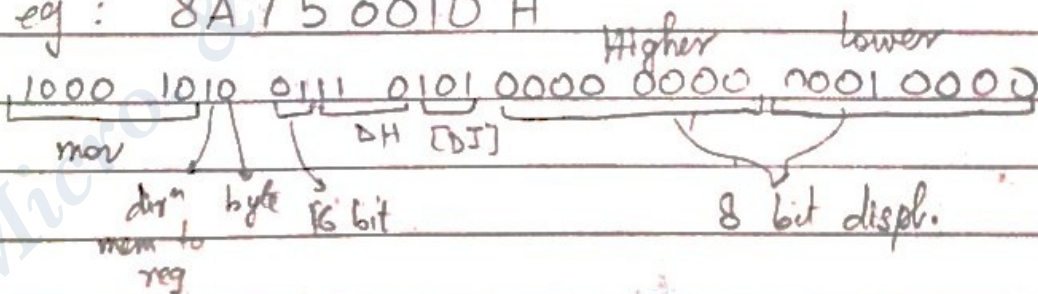 eg : 8A 75 0010 H
Higher lower
1000 1010 0111 0101 0000 0000 0001 0000
mov DH [DI]
dirⁿ byte 16 bit 8 bit displ.
mem to
reg
Micro &